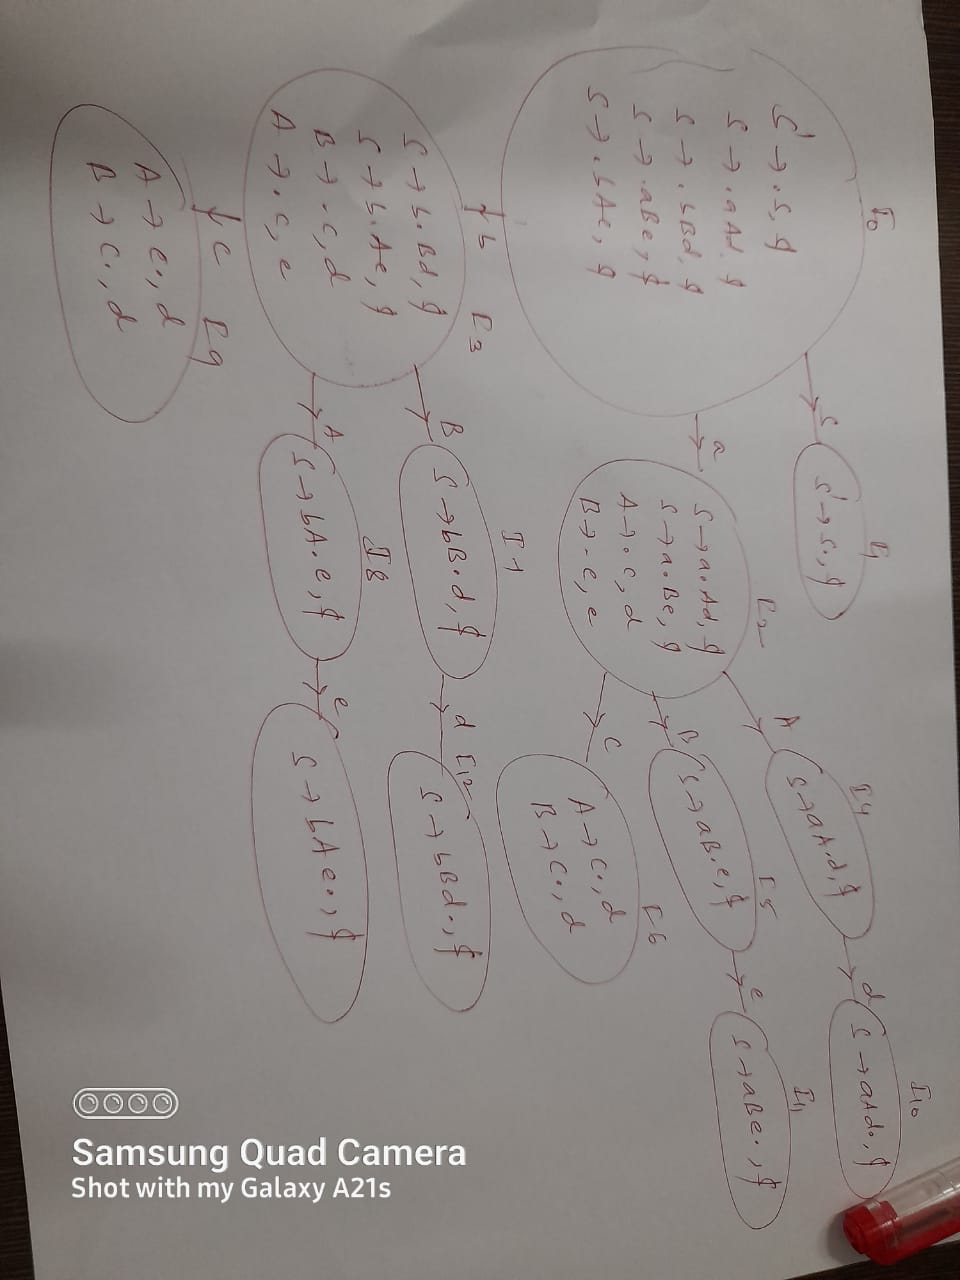 I0
S' → .S, $
S → .aAd, $
S → .bBd, $
S → .aBe, $
S → .bAe, $
S
I1
S' → S., $
a
I2
S → a.Ad, $
S → a.Be, $
A → .c, d
B → .c, e
A
I4
S → aA.d, $
d
I10
S → aAd., $
B
I5
S → aB.e, $
e
I11
S → aBe., $
c
I6
A → c., d
B → c., d
b
I3
S → b.Bd, $
S → b.Ae, $
B → .c, d
A → .c, e
B
I7
S → bB.d, $
d
I12
S → bBd., $
A
I8
S → bA.e, $
e
S → bAe., $
c
I9
A → c., d
B → c., d
Samsung Quad Camera
Shot with my Galaxy A21s